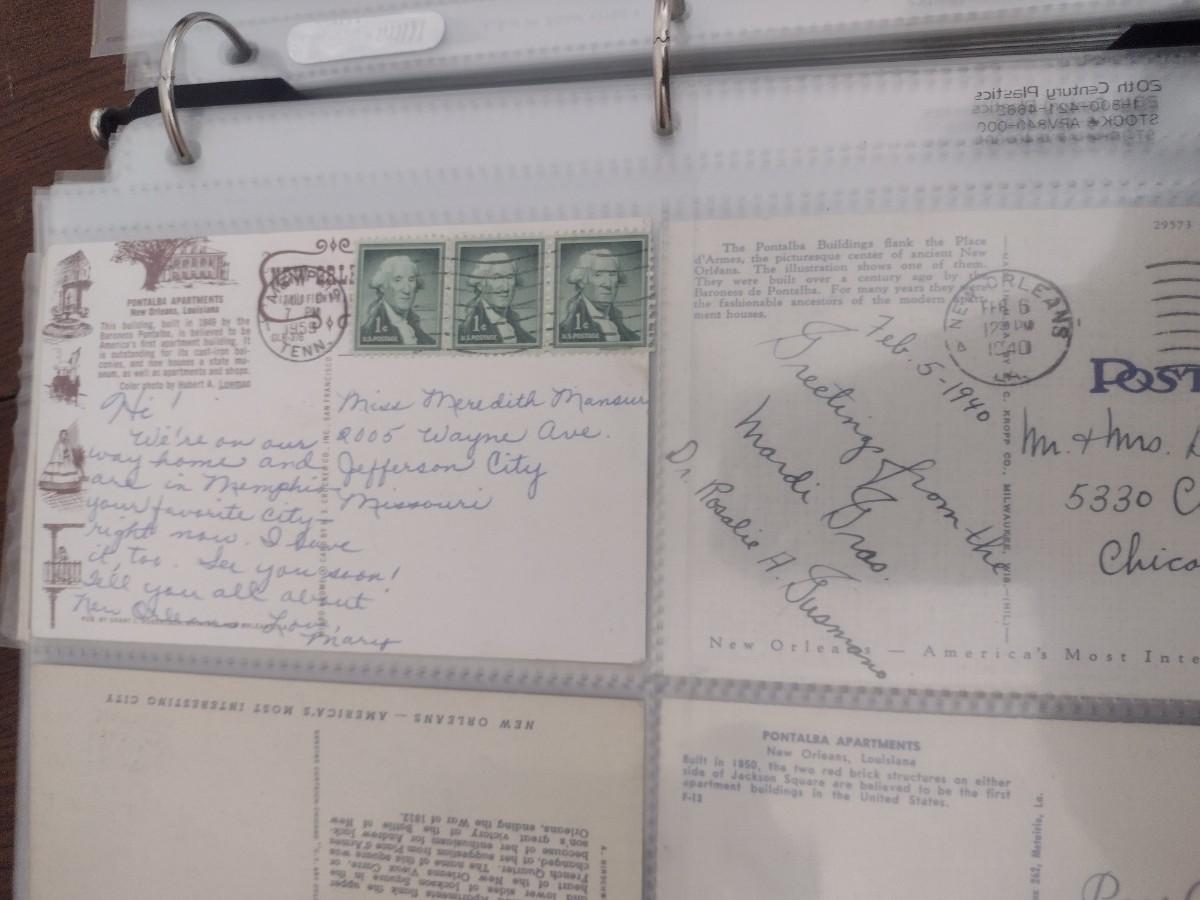 20th Century Plastics
1-800-421-4662
NEW ORLE
7 PM
1959
TENN.
1¢
U.S. POSTAGE
1¢
U.S. POSTAGE
1¢
U.S. POSTAGE
PONTALBA APARTMENTS
New Orleans, Louisiana
This building, built in 1849 by the
Baroness Pontalba, is believed to be
America's first apartment building. It
is outstanding for its cast-iron bal-
conies, and now houses a state mu-
seum, as well as apartments and shops.
Color photo by Hubert A. Lowman
Hi!
We're on our
way home and
are in Memphis-
your favorite city-
right now. I love
it, too. See you soon!
Tell you all about
New Orleans Love,
Mary
Miss Meredith Mansur
2005 Wayne Ave.
Jefferson City
Missouri
29573
The Pontalba Buildings flank the Place
d'Armes, the picturesque center of ancient New
Orleans. The illustration shows one of them.
They were built over a century ago by the
Baroness de Pontalba. For many years they were
the fashionable ancestors of the modern apart-
ment houses.
NEW ORLEANS
FEB 6
12 PM
1940
LA.
Feb. 5-1940
Greetings from the
Mardi Gras.
Dr. Rosalie H.
C. KROPP CO., MILWAUKEE, WIS.
POST
Mr. & Mrs.
5330 C
Chica
New Orleans — America's Most Inte
NEW ORLEANS — AMERICA'S MOST INTERESTING CITY
heart of the New Orleans Vieux Carre, or
French Quarter. The name of this square was
changed, at her suggestion from Place d'Armes
because of her enthusiasm for Andrew Jack-
son's great victory at the Battle of New
Orleans, ending the War of 1812.
PONTALBA APARTMENTS
New Orleans, Louisiana
Built in 1850, the two red brick structures on either
side of Jackson Square are believed to be the first
apartment buildings in the United States.
F-13
262, Metairie, La.